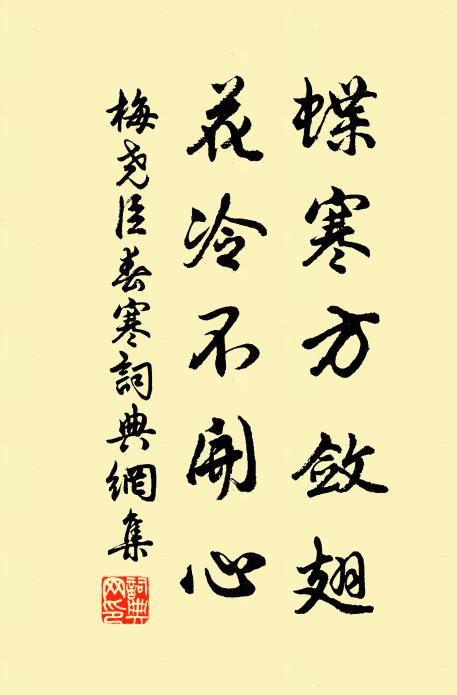 蝶寒方斂翅
花冷不開心
梅堯臣春寒詞典網集
詞典網印